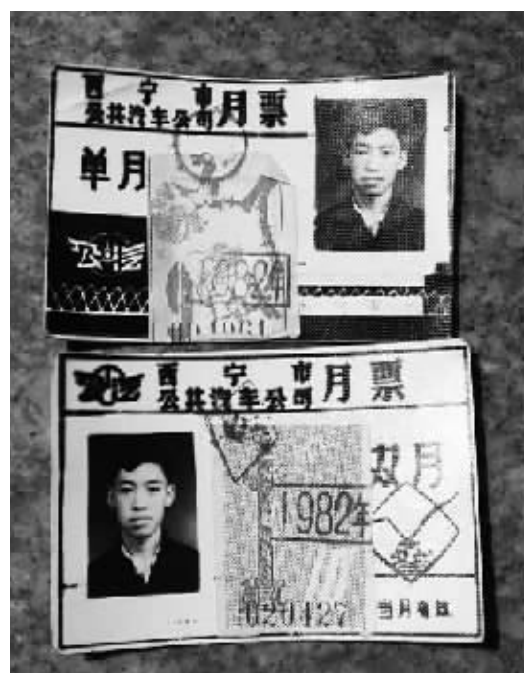 西宁市
公共汽车公司月票
单月
西宁市
公共汽车公司月票
双月
1982年
020427
当月有效